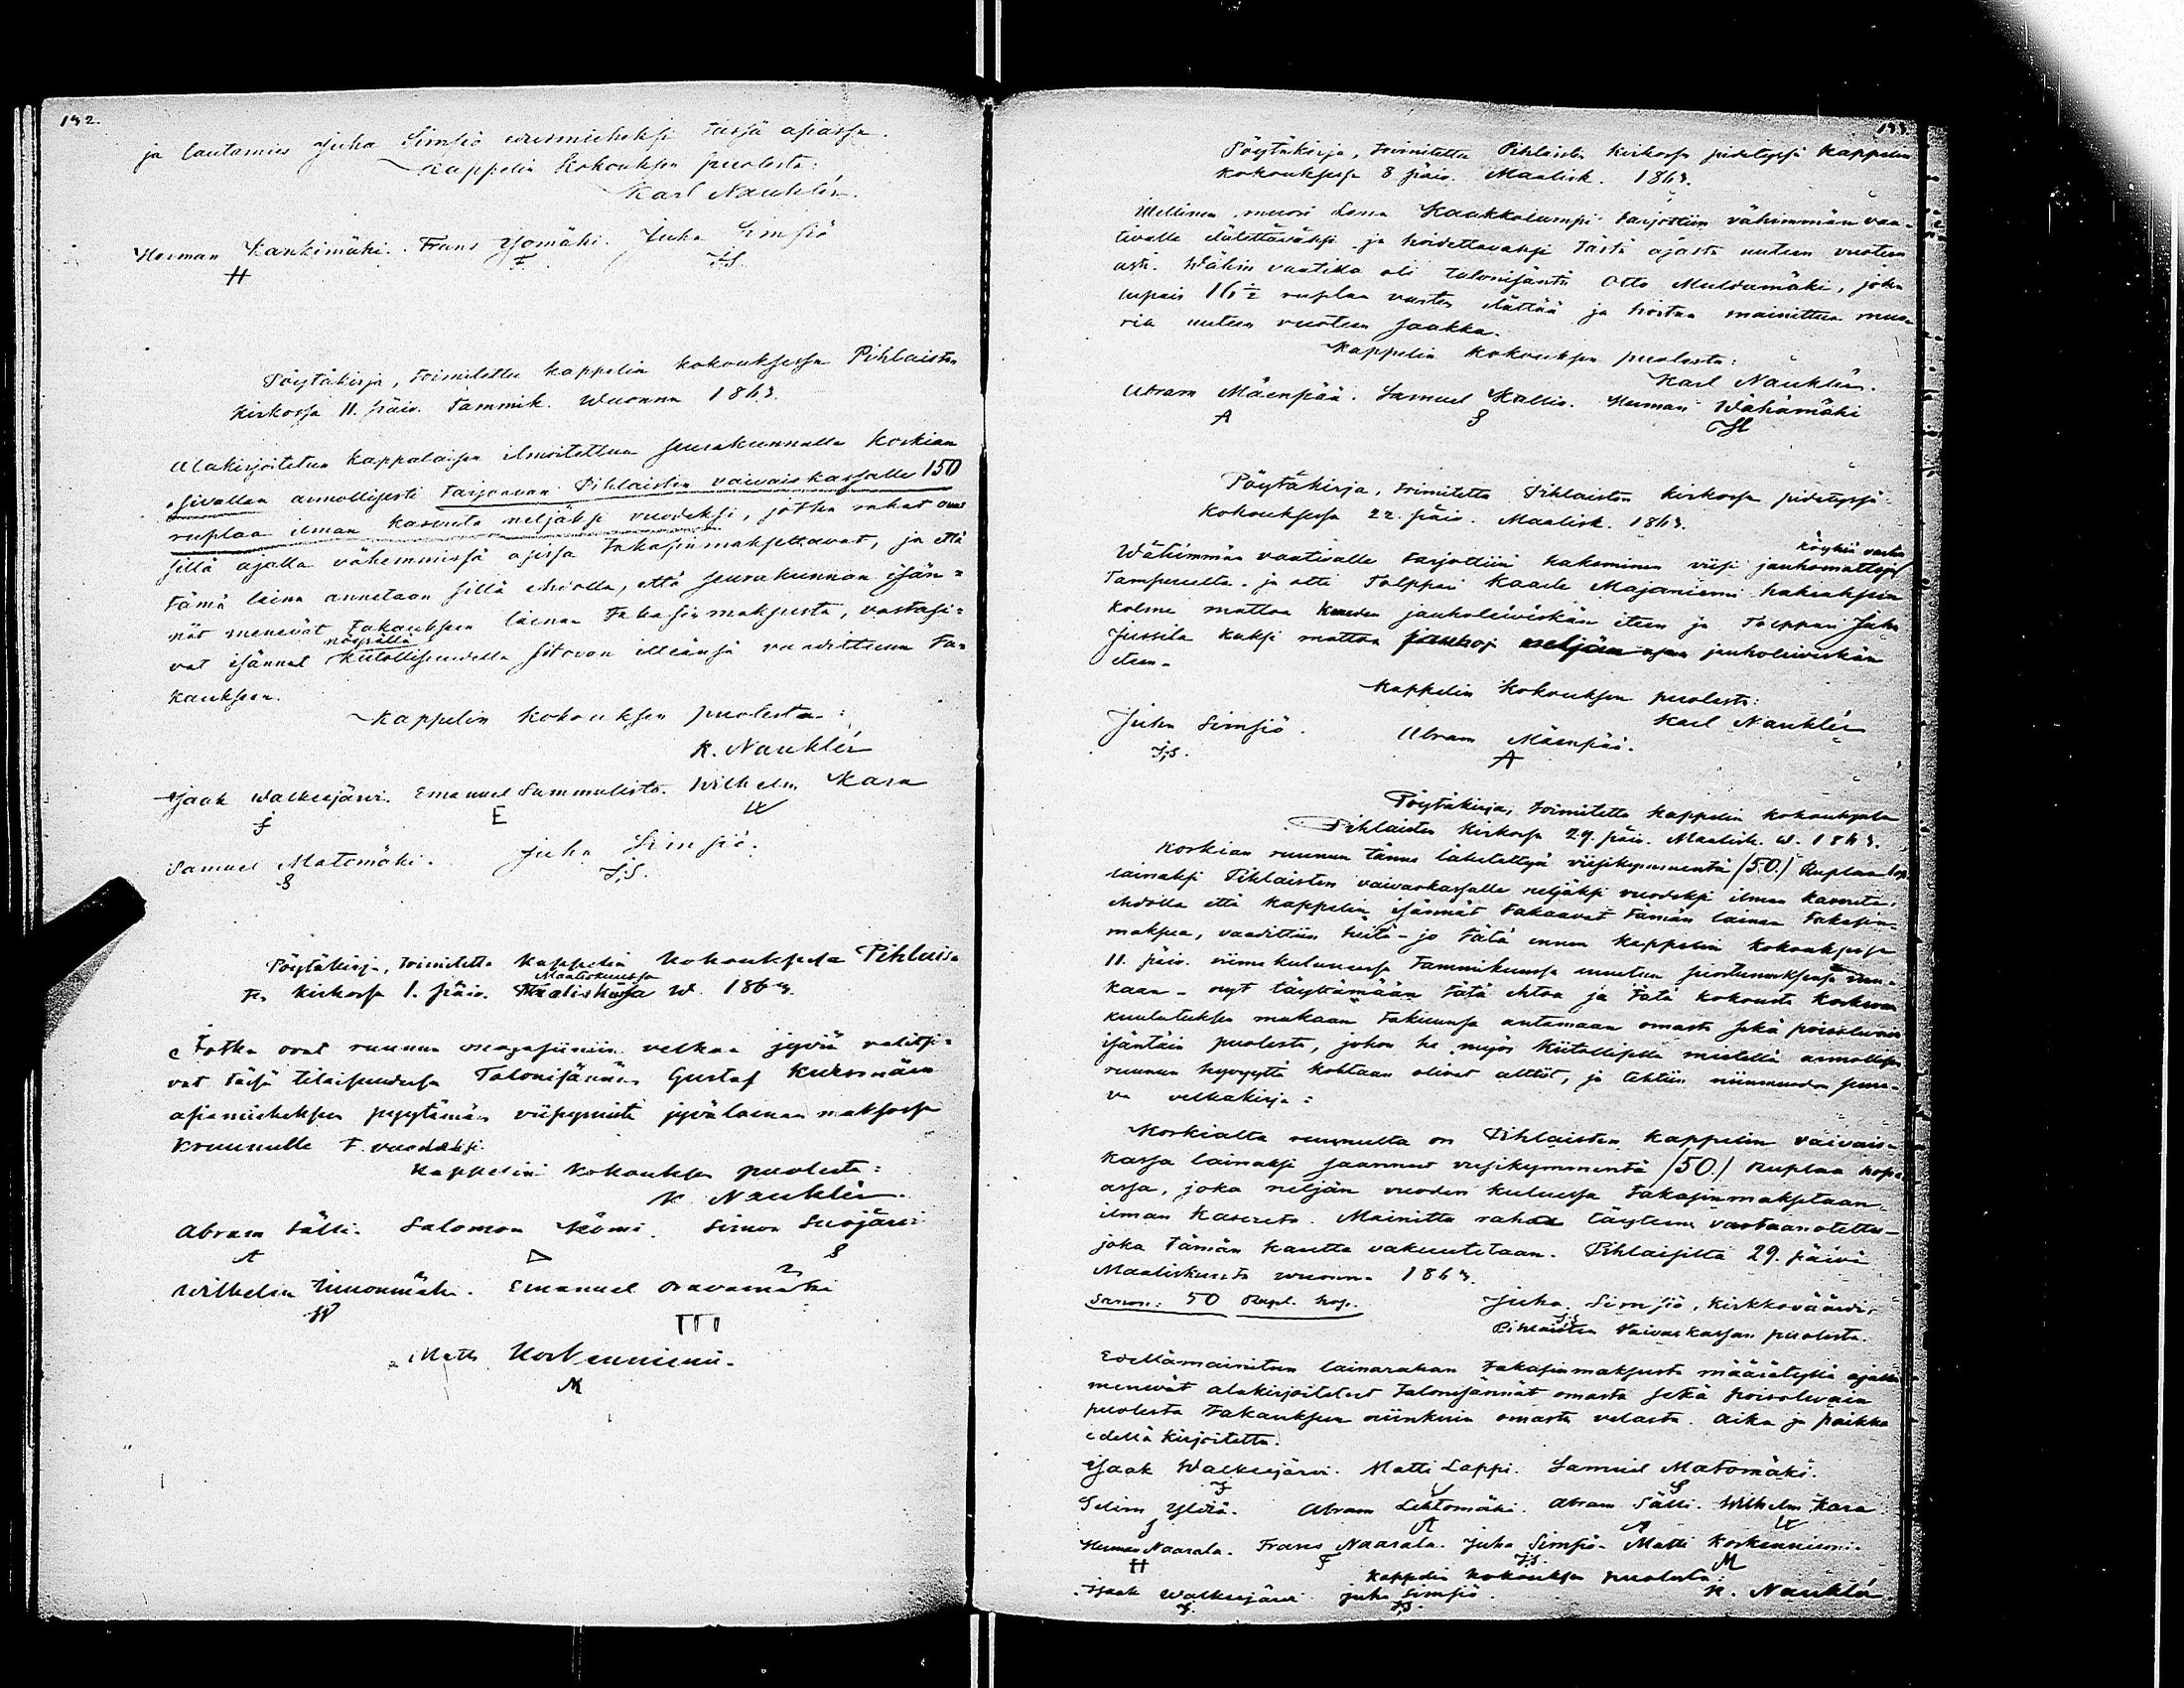 142.
ja lautamies Juha Simsiö uusmieheksi tässä asiassa.
Kappelin Kokouksen puolesta:
Karl Nauklér.
Herman Kankimäki. Frans Yömäki. Juha Simsiö
H F J.S.
Pöytäkirja, toimitettu kappelin kokouksessa Pihlaisten
Kirkossa 11. päiv. Tammik. Wuonna 1863.
Alakirjoitetun Kappalaisen ilmoitettua seurakunnalle Korkian
Esivallan armollisesti tarjoavan Pihlaisten vaivaiskassalle 150
ruplaa ilman kasvuita neljäksi vuodeksi, jotka rahat ovat
sillä ajalla vähemmissä osissa takasinmaksettavat, ja että
tämä laina annetaan sillä ehdolla, että seurakunnan isän-
nät menevät takaukseen lainan takasinmaksusta, vastasi-
vat isännät nöyrällä kiitollisuudella sitovan itteänsä vaadittuun ta-
kaukseen.
Kappelin kokouksen puolesta:
K. Nauklér
Isaak Walkiejärvi. Emanuel Sammalisto. Wilhelm Kara
I E W
Samuel Matomäki. Juha Simsiö.
S J.S.
Pöytäkirja, toimitettu Kappelin Kokouksessa Pihlais-
ten Kirkossa 1. päiv. Maaliskuussa W. 1863.
Jotka ovat ruunun magasiiniin velkaa jyviä valitsi-
vat täsä tilaisuudessa Talonisännän Gustaf
asiamieheksen pyytämän viipymistä jyvälainan maksossa
Kruunulle F. vuodeksi.
Kappelin Kokouksen puolesta:
K. Nauklér.
Abram Sälli. Salomon Niemi. Simon Suojärvi
A S
Wilhelm Simonmäki. Emanuel Oravamäki
W
Matts Koskenniemi.
M
143
Pöytäkirja, toimitettu Pihlaisten Kirkossa pidetyssä kappelin
kokouksessa 8 päiv. Maalisk. 1863.
Mielinen muori Lena Kaakkolampi tarjottiin vähimmän vaa-
tivalle elätettäväksi ja hoidettavaksi tästä ajasta uuteen vuoteen
asti. Wähin vaatiва oli talonisäntä Otto Multamäki, joka
lupais 16 ½ ruplaa vasten elättää ja hoitaa mainittua muo-
ria uuteen vuoteen saakka.
Kappelin kokouksen puolesta:
Karl Nauklér.
Abram Mäenpää. Samuel Kallio. Herman Wähämäki
A S H
Pöytäkirja, toimitettu Pihlaisten kirkossa pidetyssä
Kokouksessa 22. päiv. Maalisk. 1863.
köyhiä varten
Wähimmän vaativalle tarjottiin hakeminen viisi jauhomattoja
Tampereelta. ja otti Torppari Kaarle Majaniemi hakeaksen
kolme mattoa kuuden jauholeiviskän eteen ja Torppari Juha
Jussila kaksi mattoa neljän jauholeiviskän
eteen.
Kappelin Kokouksen puolesta:
Karl Nauklér
Juha Simsiö. Abram Mäenpää.
J.S. A
Pöytäkirja, toimitettu kappelin kokouksessa
Pihlaisten Kirkossa 29. päiv. Maalisk. W. 1863.
Korkian ruunun tänne lähetettyä viisikymmentä /50./ Ruplaa hop.
lainaksi Pihlaisten vaivaskassalle neljäksi vuodeksi ilman kasvuita,
ehdolla että kappelin isännät takaavat tämän lainan takasin-
maksua, vaadittiin heitä jo tätä ennen kappelin kokouksessa
11. päiv. viimekuluneessa Tammikuussa annetun suostumuksensa mu-
kaan nyt täyttämään tätä ehtoa ja tätä kokousta koskevan
kuulutuksen mukaan takuunsa antamaan omasta sekä poisolevain
isäntäin puolesta, johon he myös kiitollisella mielellä armollisen
ruunun hyvyyttä kohtaan olivat alttiit, ja tehtiin niinmuodon seura-
va velkakirja:
Korkialta ruunulta on Pihlaisten kappelin vaivais-
kassa lainaksi saannut viisikymmentä /50./ Ruplaa hope-
assa, joka neljän vuoden kuluessa takasinmaksetaan
ilman kasvuta. Mainittu raha täyteen vastaanotettu
joka tämän kautta vakuutetaan. Pihlaisilta 29. päivä
Maaliskuuta vuonna 1863.
Sanon: 50 Rupl. hop. Juha Simsiö, Kirkkoväärdi,
J.S.
Pihlaisten Vaivaskassan puolesta.
Edellämainitun lainarahan takasinmaksusta määrätyllä ajalla
menevät alakirjoitetut talonisännät omasta sekä poisolevain
puolesta takaukseen niinkuin omasta velasta. Aika ja paikka
edellä kirjoitettu.
Isaak Walkiejärvi. Matti Lappi. Samuel Matomäki.
I S
Selim Ylliä. Abram Lehtomäki. Abram Sälli. Wilhelm Kara
S A A W
Herman Naarala. Frans Naarala. Juha Simsiö. Matti Koskenniemi.
H F J.S. M
Kappelin kokouksen puolesta:
Isaak Walkiejärvi. Juha Simsiö. K. Nauklér
I. J.S.